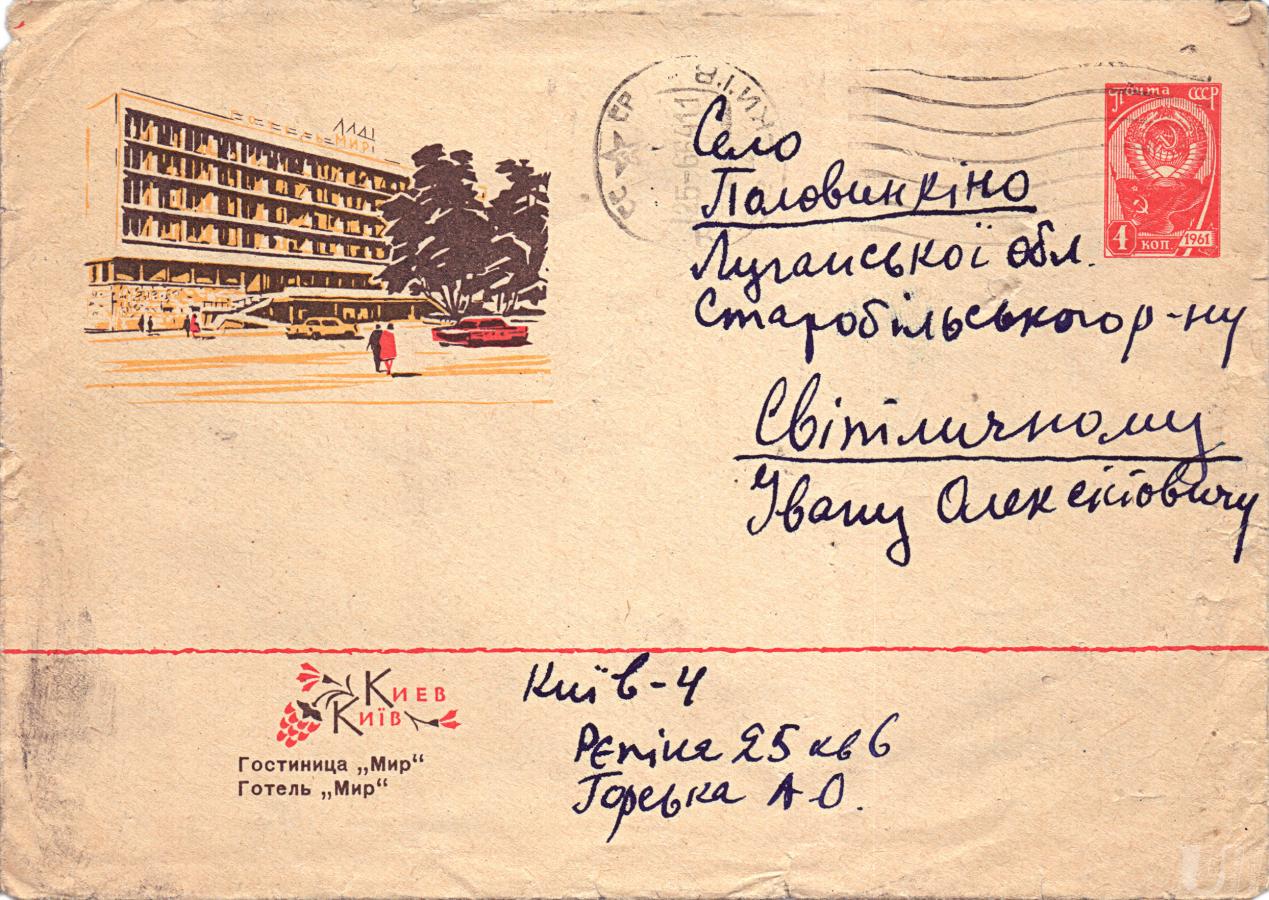 ГОТЕЛЬ МИР
КИЇВ
СССР
25-6 6411
Почта СССР
4 коп 1961
Село
Половинкіно
Луганської обл.
Старобільського р-ну
Світличному
Івану Олексійовичу
Киев
Київ
Гостиница „Мир“
Готель „Мир“
Київ-4
Рєпіна 25 кв 6
Горська А О.